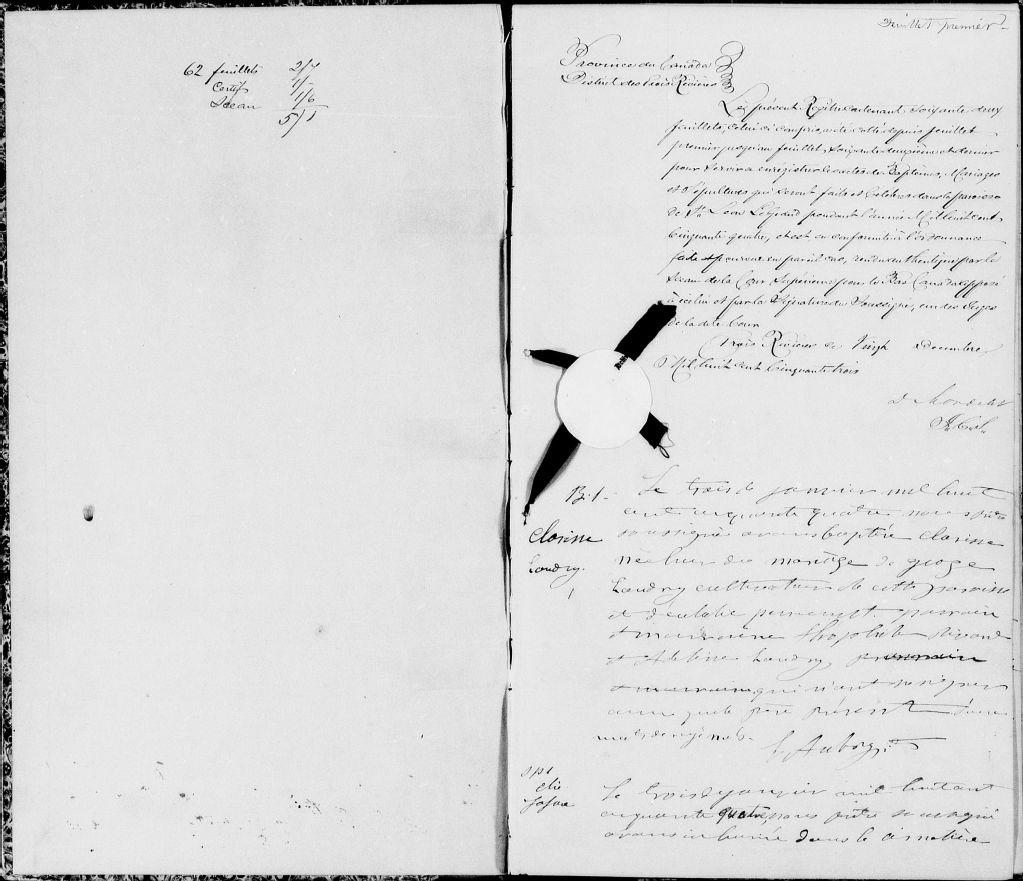 62 feuillets 2/7
Certif 1/-
Sceau 1/6
5/1
Feuillet premier
Province du Canada
District des Trois Rivières
Le présent Registre contenant soixante deux
feuillets, celui ci compris, a été cotté depuis feuillet
premier jusqu'au feuillet soixante deuxième et dernier
pour servir à enregistrer les actes de Baptêmes, Mariages
et Sépultures qui seront faits et célébrés dans la paroisse
de St. Léon Légrand pendant l'année Mil huit cent
Cinquante quatre, et est en conformité à l'ordonnance
faite et pourvue en pareil cas, rendu authentique par le
Sceau de la Cour Supérieure pour le Bas Canada apposé
à icelui et par la Signature du Soussigné, un des Juges
de la dite Cour
Trois Rivières ce Vingt décembre
Mil huit cent Cinquante trois
D Mondelet
J.C.S.
B.1-
Clarisse
Landry.
1
Le trois de janvier mil huit
cent cinquante quatre nous prêtre
soussigné avons baptisé Clarisse
née hier du mariage de george
Landry cultivateur de cette paroisse
et d'eulalie parrain
et marraine
et Adeline Landry parrain
et marraine qui n'ont su signer
ainsi que le père présent
Le trois de janvier mil huit cent
cinquante quatre nous prêtre soussigné
avons inhumé dans le cimetière